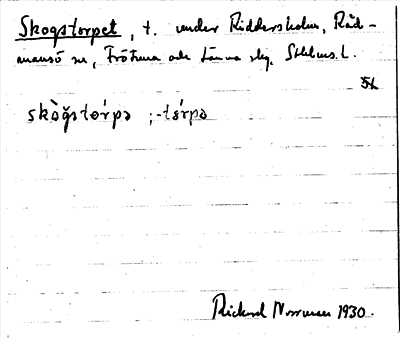 Skogstorpet, t. under Riddersholm, Råd-
mansö sn, Frötuna och Länna skg. Sthlms l.
5L
skòğstớrpə ; -tɛ́rpə
Rickard Norrman 1930.